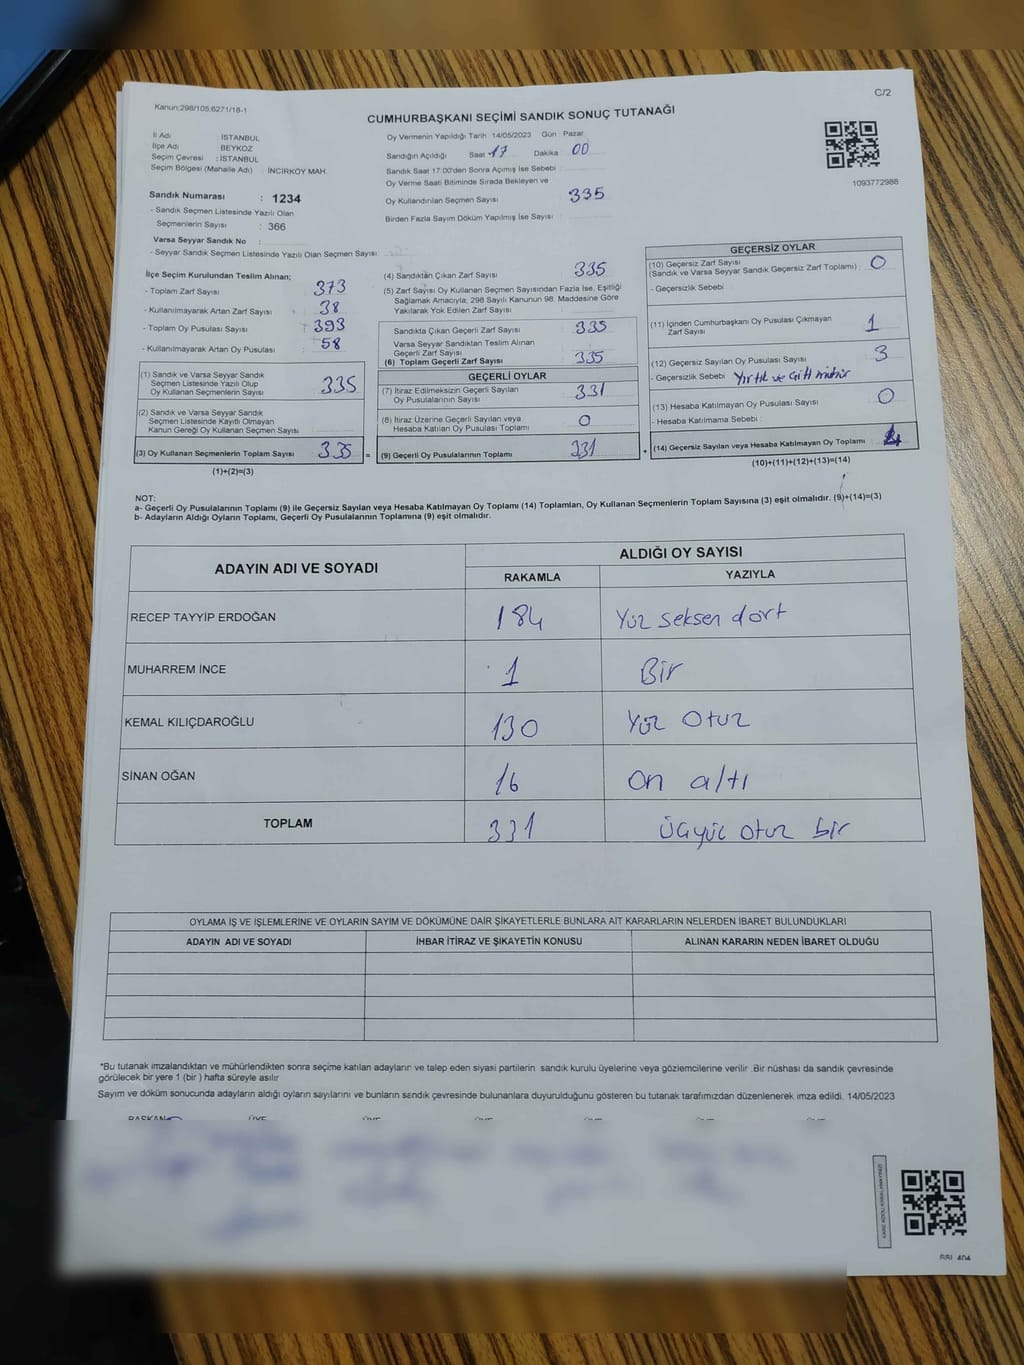 C/2
Kanun:298/105,6271/18-1
CUMHURBAŞKANI SEÇİMİ SANDIK SONUÇ TUTANAĞI
1093772988
İl Adı : İSTANBUL
İlçe Adı : BEYKOZ
Seçim Çevresi : İSTANBUL
Seçim Bölgesi (Mahalle Adı) : İNCİRKÖY MAH.
Sandık Numarası : 1234
- Sandık Seçmen Listesinde Yazılı Olan
Seçmenlerin Sayısı : 366
Varsa Seyyar Sandık No :
- Seyyar Sandık Seçmen Listesinde Yazılı Olan Seçmen Sayısı :
Oy Vermenin Yapıldığı Tarih 14/05/2023 Gün : Pazar
Sandığın Açıldığı Saat 17 Dakika 00
Sandık Saat 17:00'den Sonra Açımış İse Sebebi :
Oy Verme Saati Bitiminde Sırada Bekleyen ve
Oy Kullandırılan Seçmen Sayısı : 335
Birden Fazla Sayım Döküm Yapılmış İse Sayısı :
İlçe Seçim Kurulundan Teslim Alınan;
- Toplam Zarf Sayısı : 373
- Kullanılmayarak Artan Zarf Sayısı : 38
- Toplam Oy Pusulası Sayısı : 393
- Kullanılmayarak Artan Oy Pusulası : 58
(1) Sandık ve Varsa Seyyar Sandık
Seçmen Listesinde Yazılı Olup
Oy Kullanan Seçmenlerin Sayısı : 335
(2) Sandık ve Varsa Seyyar Sandık
Seçmen Listesinde Kayıtlı Olmayan
Kanun Gereği Oy Kullanan Seçmen Sayısı :
(3) Oy Kullanan Seçmenlerin Toplam Sayısı : 335 =
(1)+(2)=(3)
(4) Sandıktan Çıkan Zarf Sayısı : 335
(5) Zarf Sayısı Oy Kullanan Seçmen Sayısından Fazla İse, Eşitliği
Sağlamak Amacıyla; 298 Sayılı Kanunun 98. Maddesine Göre
Yakılarak Yok Edilen Zarf Sayısı :
Sandıkta Çıkan Geçerli Zarf Sayısı : 335
Varsa Seyyar Sandıktan Teslim Alınan
Geçerli Zarf Sayısı :
(6) Toplam Geçerli Zarf Sayısı : 335
GEÇERLİ OYLAR
(7) İtiraz Edilmeksizin Geçerli Sayılan
Oy Pusulalarının Sayısı : 331
(8) İtiraz Üzerine Geçerli Sayılan veya
Hesaba Katılan Oy Pusulası Toplamı : 0
(9) Geçerli Oy Pusulalarının Toplamı : 331 +
GEÇERSİZ OYLAR
(10) Geçersiz Zarf Sayısı
(Sandık ve Varsa Seyyar Sandık Geçersiz Zarf Toplamı) : 0
- Geçersizlik Sebebi :
(11) İçinden Cumhurbaşkanı Oy Pusulası Çıkmayan
Zarf Sayısı : 1
(12) Geçersiz Sayılan Oy Pusulası Sayısı : 3
- Geçersizlik Sebebi : Yırtık ve Çift mühür
(13) Hesaba Katılmayan Oy Pusulası Sayısı : 0
- Hesaba Katılmama Sebebi :
(14) Geçersiz Sayılan veya Hesaba Katılmayan Oy Toplamı : 4
(10)+(11)+(12)+(13)=(14)
NOT:
a- Geçerli Oy Pusulalarının Toplamı (9) ile Geçersiz Sayılan veya Hesaba Katılmayan Oy Toplamı (14) Toplamları, Oy Kullanan Seçmenlerin Toplam Sayısına (3) eşit olmalıdır. (9)+(14)=(3)
b- Adayların Aldığı Oyların Toplamı, Geçerli Oy Pusulalarının Toplamına (9) eşit olmalıdır.
ADAYIN ADI VE SOYADI ALDIĞI OY SAYISI
RAKAMLA YAZIYLA
RECEP TAYYİP ERDOĞAN 184 Yüz seksen dört
MUHARREM İNCE 1 Bir
KEMAL KILIÇDAROĞLU 130 Yüz Otuz
SİNAN OĞAN 16 On altı
TOPLAM 331 üçyüz otuz bir
OYLAMA İŞ VE İŞLEMLERİNE VE OYLARIN SAYIM VE DÖKÜMÜNE DAİR ŞİKAYETLERLE BUNLARA AİT KARARLARIN NELERDEN İBARET BULUNDUKLARI
ADAYIN ADI VE SOYADI İHBAR İTİRAZ VE ŞİKAYETİN KONUSU ALINAN KARARIN NEDEN İBARET OLDUĞU
*Bu tutanak imzalandıktan ve mühürlendikten sonra seçime katılan adayların ve talep eden siyasi partilerin sandık kurulu üyelerine veya gözlemcilerine verilir .Bir nüshası da sandık çevresinde
görülecek bir yere 1 (bir ) hafta süreyle asılır
Sayım ve döküm sonucunda adayların aldığı oyların sayılarını ve bunların sandık çevresinde bulunanlara duyurulduğunu gösteren bu tutanak tarafımızdan düzenlenerek imza edildi. 14/05/2023
BAŞKAN ÜYE ÜYE ÜYE ÜYE ÜYE ÜYE